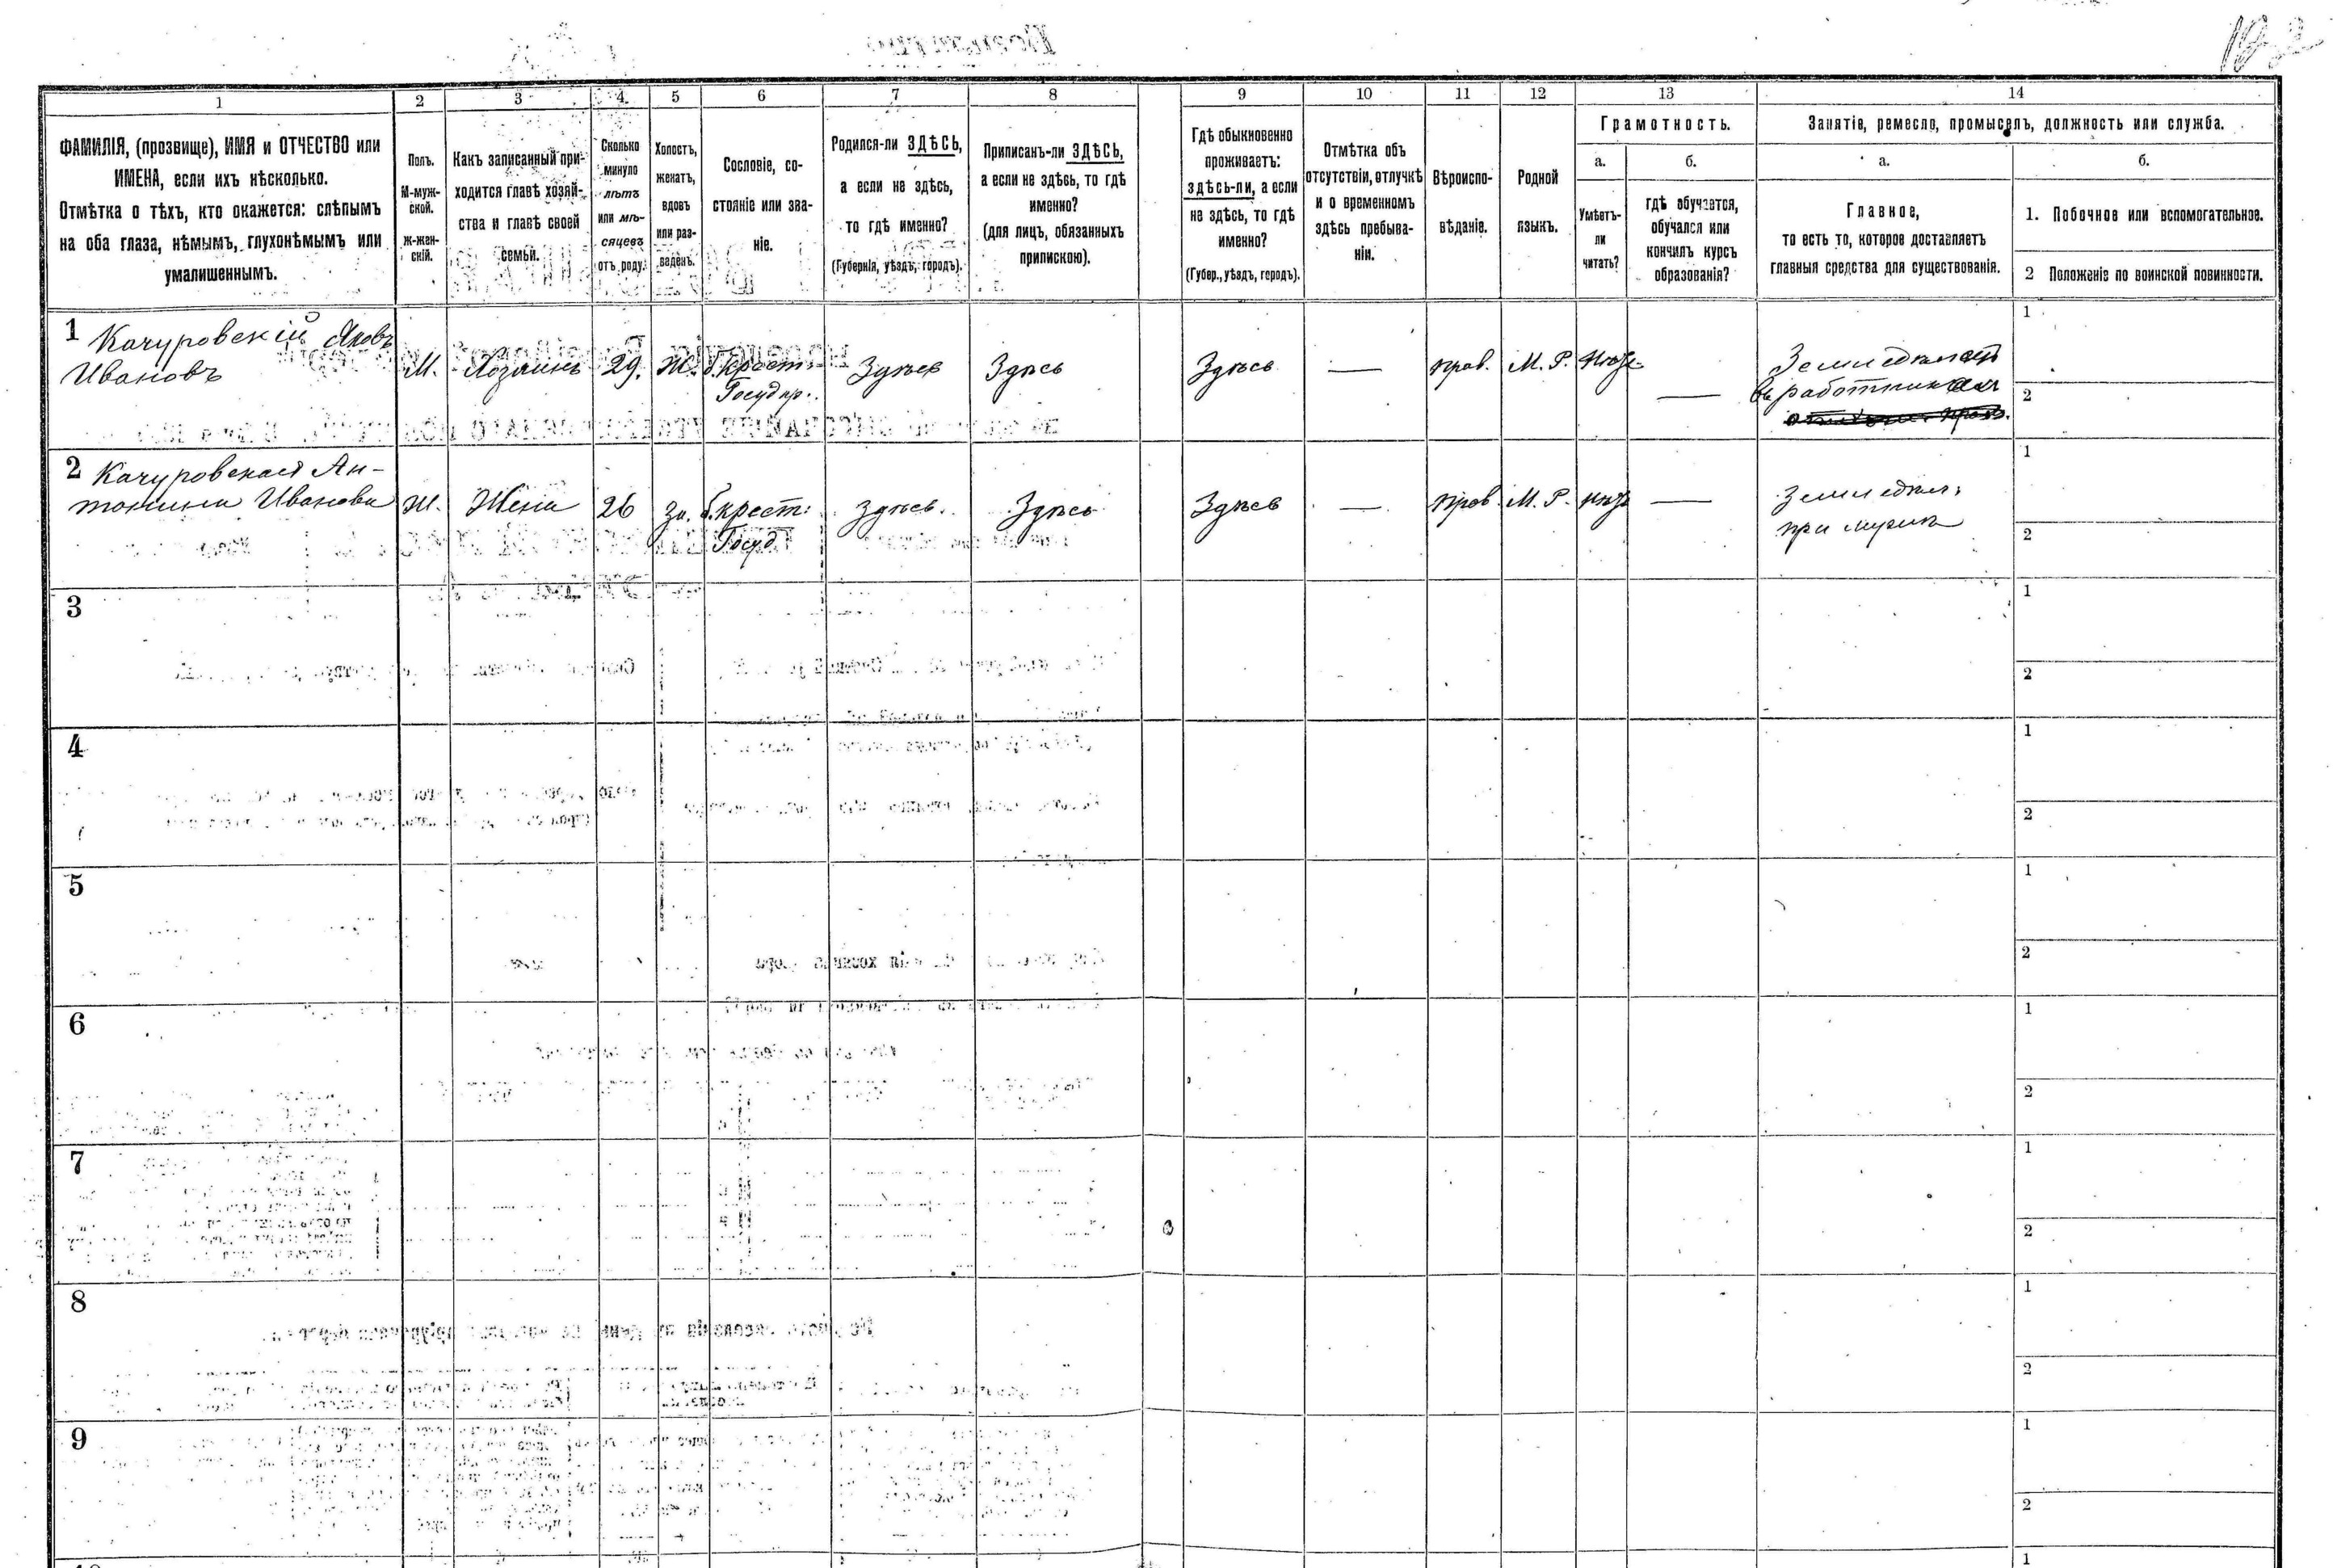 1 2 3 4 5 6 7 8 9 10 11 12 13 14
ФАМИЛІЯ, (прозвище), ИМЯ и ОТЧЕСТВО или
ИМЕНА, если ихъ нѣсколько.
Отмѣтка о тѣхъ, кто окажется: слѣпымъ
на оба глаза, нѣмымъ, глухонѣмымъ или
умалишеннымъ.
Полъ.
М-муж-
ской.
ж-жен-
скій.
Какъ записанный при-
ходится главѣ хозяй-
ства и главѣ своей
семьи.
Сколько
минуло
лѣтъ
или мѣ-
сяцевъ
отъ роду.
Холостъ,
женатъ,
вдовъ
или раз-
веденъ.
Сословіе, со-
стояніе или зва-
ніе.
Родился-ли ЗДѢСЬ,
а если не здѣсь,
то гдѣ именно?
(Губернія, уѣздъ, городъ).
Приписанъ-ли ЗДѢСЬ,
а если не здѣсь, то гдѣ
именно?
(для лицъ, обязанныхъ
припискою).
Гдѣ обыкновенно
проживаетъ:
здѣсь-ли, а если
не здѣсь, то гдѣ
именно?
(Губер., уѣздъ, городъ).
Отмѣтка объ
отсутствіи, отлучкѣ
и о временномъ
здѣсь пребыва-
ніи.
Вѣроиспо-
вѣданіе.
Родной
языкъ.
Грамотность.
а.
Умѣетъ-
ли
читать?
б.
гдѣ обучается,
обучался или
кончилъ курсъ
образованія?
Занятіе, ремесло, промыселъ, должность или служба.
а.
Главное,
то есть то, которое доставляетъ
главныя средства для существованія.
б.
1. Побочное или вспомогательное.
2 Положеніе по воинской повинности.
1 Качуровскій Яковъ
Ивановъ
М. Хозяинъ 29. Ж. б. крест.
Госуд пр.
Здѣсь Здѣсь Здѣсь — прав. М. Р. нѣтъ —
Земледѣлецъ
въ работникахъ
1
2
2 Качуровская Ан-
тонина Иванова
Ж. Жена 26 За. б. крест:
Госуд
здѣсь. Здѣсь Здѣсь — прав. М. Р. нѣтъ —
земледѣл.
при мужѣ
1
2
3
1
2
4
1
2
5
1
2
6
1
2
7
1
2
8
1
2
9
1
2
1